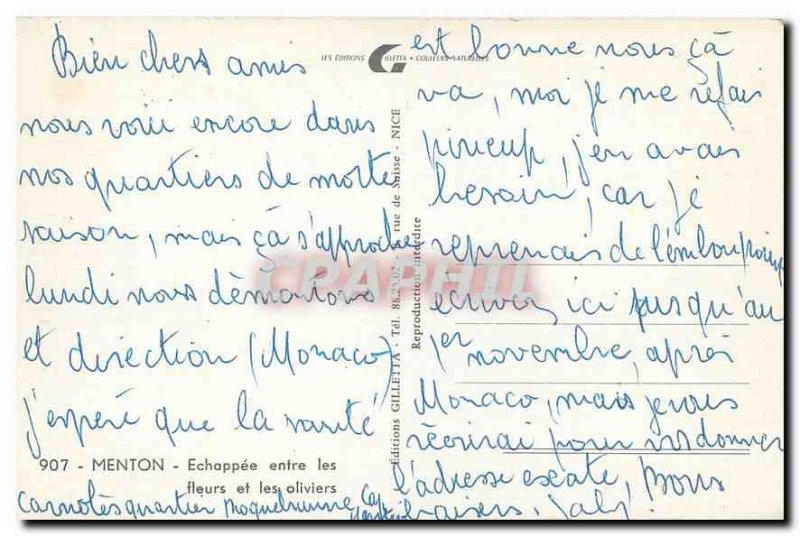 Bien chers amis
nous voici encore dans
nos quartiers de morte
saison, mais çà s'approche
lundi nous démontons
et direction (Monaco)
j'espère que la santé
907 - MENTON - Echappée entre les
fleurs et les oliviers
carnolès quartier Cap
Martin
LES ÉDITIONS GILLETTA - COULEURS NATURELLES
Éditions GILLETTA - Tél. 88.25.02 rue de Suisse - NICE
Reproduction interdite
CPAPHIL
est bonne nous çà
va, moi je me refais
j'en avais
besoin, car je
reprenais de l'embonpoint
écrivez ici jusqu'au
1er novembre, après
Monaco, mais je vous
réécrirai pour vs donner
l'adresse exacte, Bons
baisers,